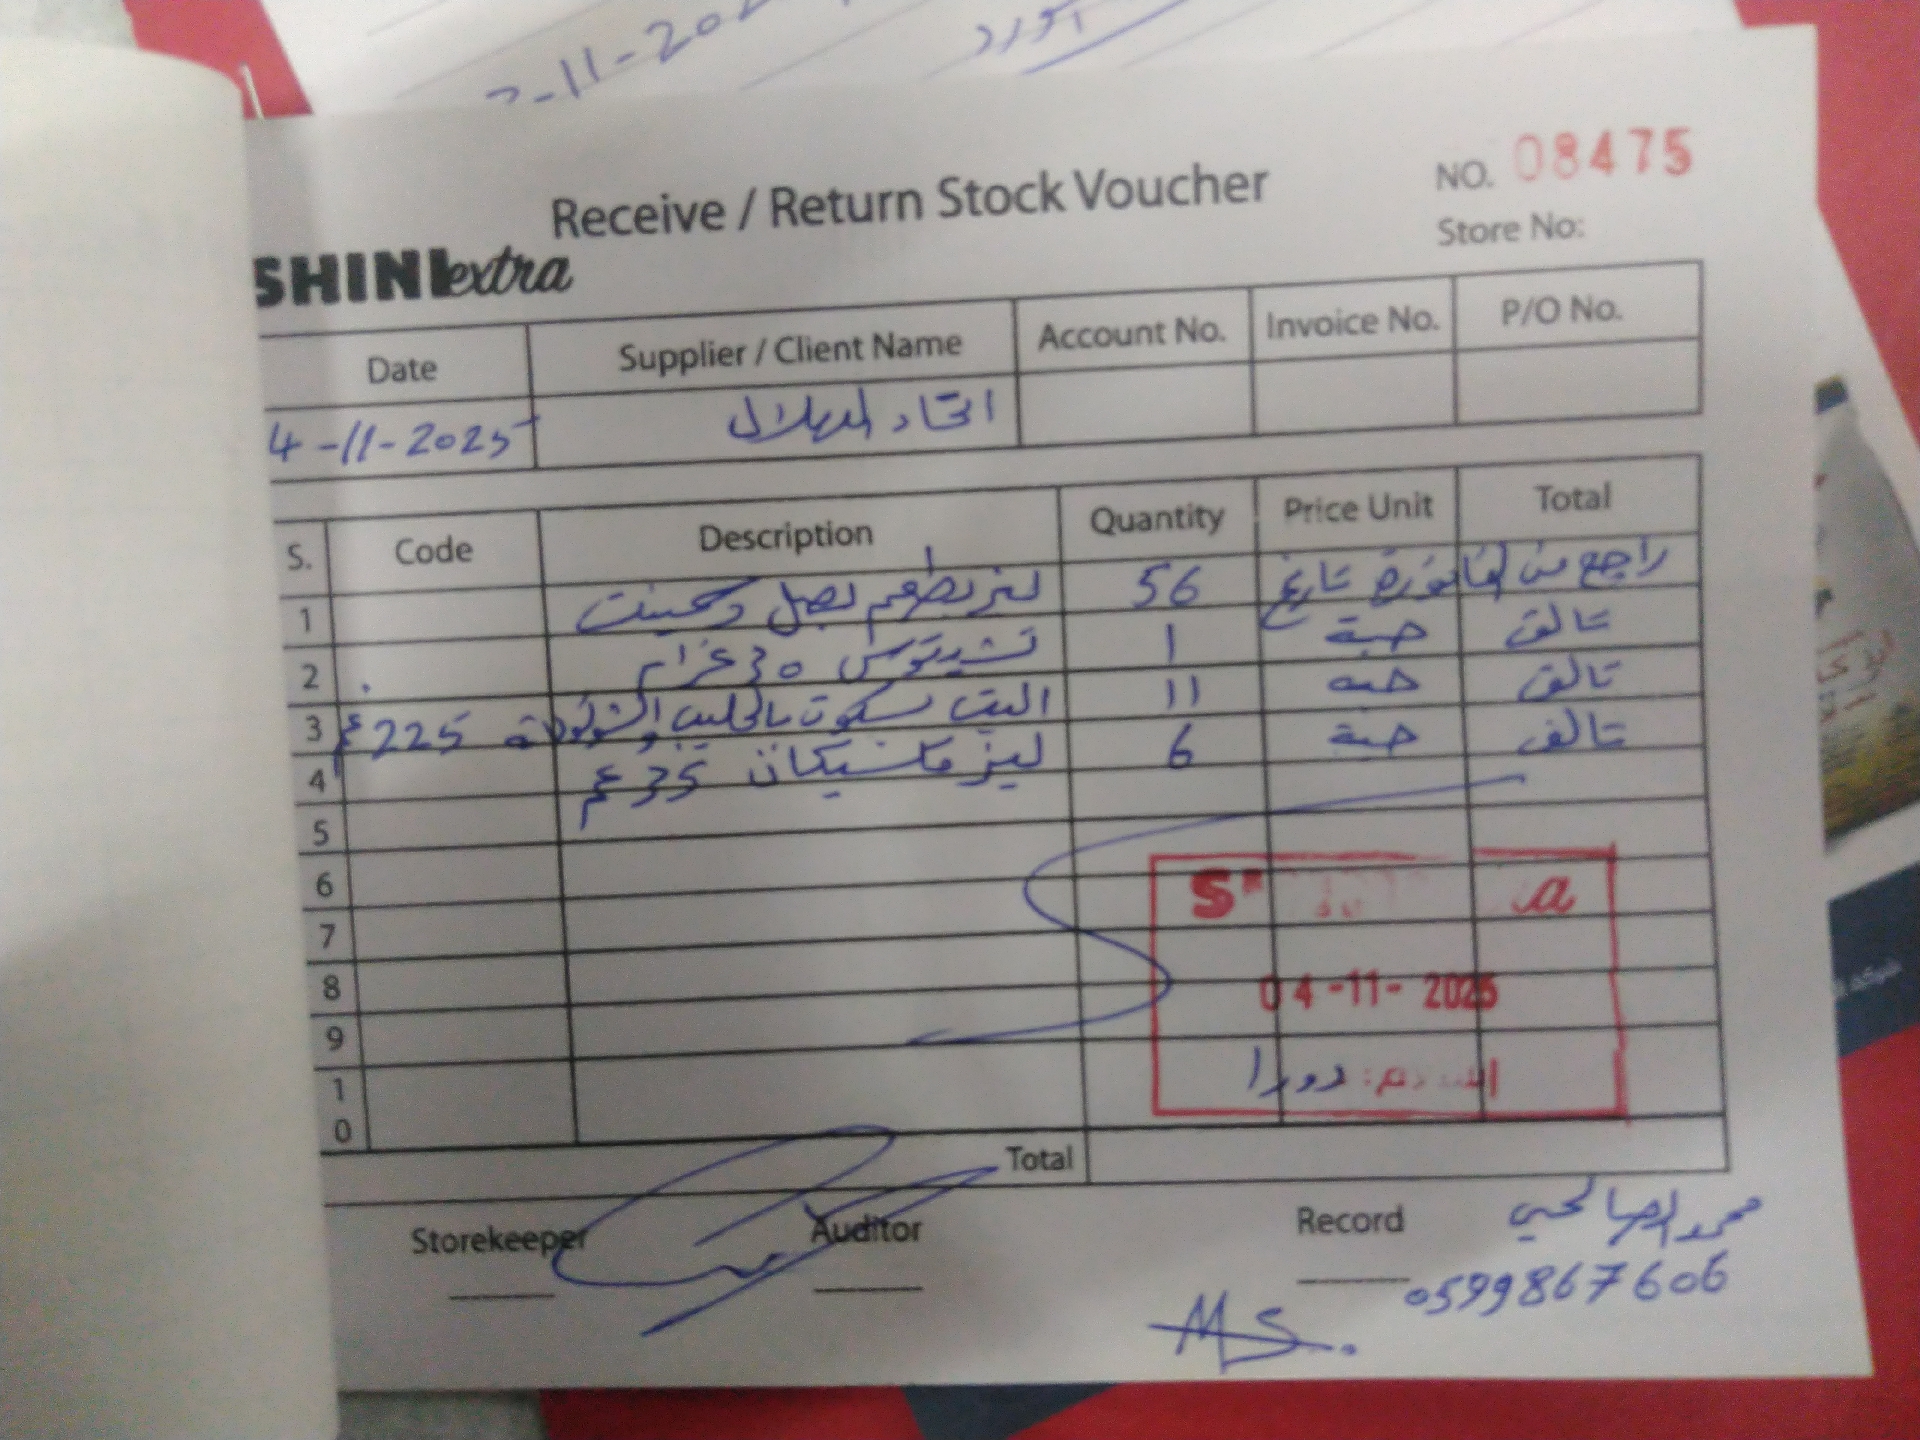 -11-202
NO. 08475
Receive / Return Stock Voucher
Store No:
SHINI extra
Date Supplier / Client Name Account No. Invoice No. P/O No.
4-11-2025 اتحاد الهلال
S. Code Description Quantity Price Unit Total
1 ليز بطعم بصل 56 راجع من فاتورة تاريخ
2 تشيتوس 30 غرام 1 حبة تالف
3 بسكوت بالحليب والشوكولاتة 225 غم 11 حبه تالف
4 ليز مكسيكان 35 غم 6 حبة تالف
5
6
7
8
9
10
04-11-2025
دورا
Total
Storekeeper Auditor Record
محمد الصالحي
0599867606
MS.